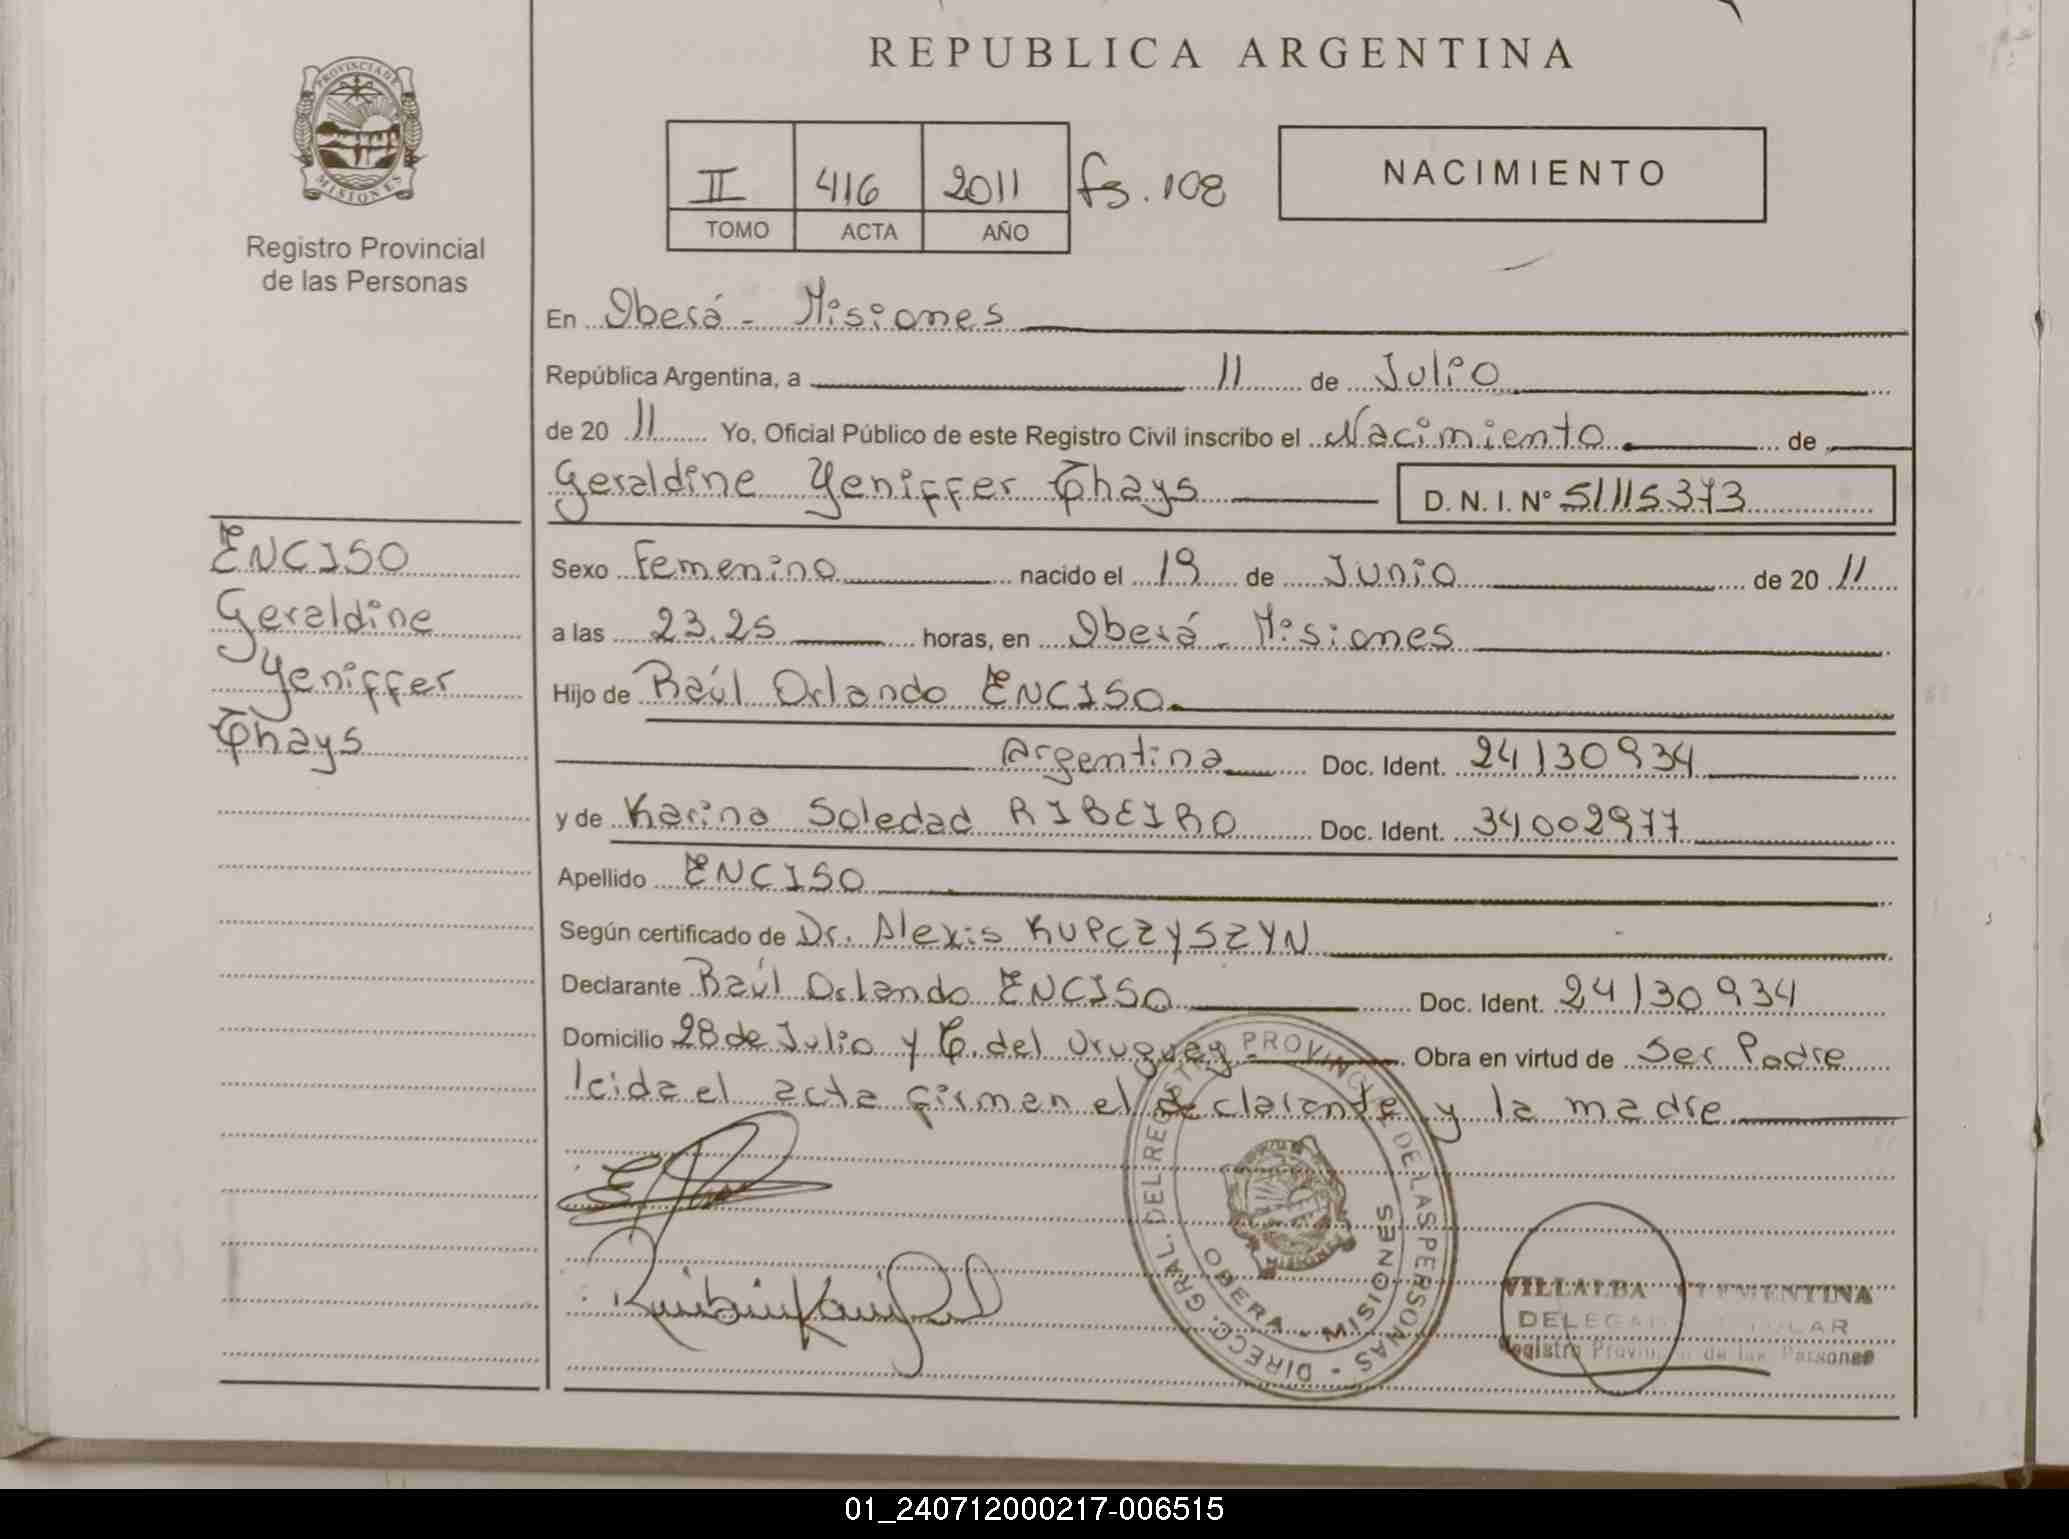 REPUBLICA ARGENTINA
PROVINCIA DE
MISIONES
Registro Provincial
de las Personas
II 416 2011 fs. 108
TOMO ACTA AÑO
NACIMIENTO
En Oberá - Misiones
República Argentina, a 11 de Julio
de 20 11 Yo, Oficial Público de este Registro Civil inscribo el Nacimiento de
Geraldine Yeniffer Thays D. N. I. Nº 51115373
ENCISO
Geraldine
Yeniffer
Thays
Sexo Femenino nacido el 19 de Junio de 20 11
a las 23.25 horas, en Oberá - Misiones
Hijo de Raúl Orlando ENCISO
Argentina Doc. Ident. 24130934
y de Karina Soledad RIBEIRO Doc. Ident. 34002977
Apellido ENCISO
Según certificado de Dr. Alexis KUPCZYSZYN
Declarante Raúl Orlando ENCISO Doc. Ident. 24130934
Domicilio 28 de Julio y C. del Uruguay - Obra en virtud de Ser Padre
leida el acta firman el declarante y la madre
DIRECC. GRAL. DEL REGISTRO PROVINCIAL DE LAS PERSONAS -
OBERA - MISIONES
VILLALBA CLEMENTINA
DELEGADA TITULAR
Registro Provincial de las Personas
01_240712000217-006515